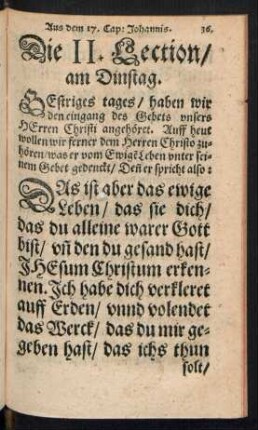 Aus dem 17. Cap: Johannis. 36.
Die II. Lection/
am Dinstag.
GEstriges tages/ haben wir
den eingang des Gebets vnsers
HErren Christi angehöret. Auff heut
wollen wir ferner dem Herren Christo zu-
hören/ was er vom Ewigē Leben vnter sei-
nem Gebet gedenckt/ Deñ er spricht also:
DAs ist aber das ewige
Leben/ das sie dich/
das du alleine warer Gott
bist/ vñ den du gesand hast/
JHEsum Christum erken-
nen. Ich habe dich verkleret
auff Erden/ vnnd volendet
das Werck/ das du mir ge-
geben hast/ das ichs thun
solt/